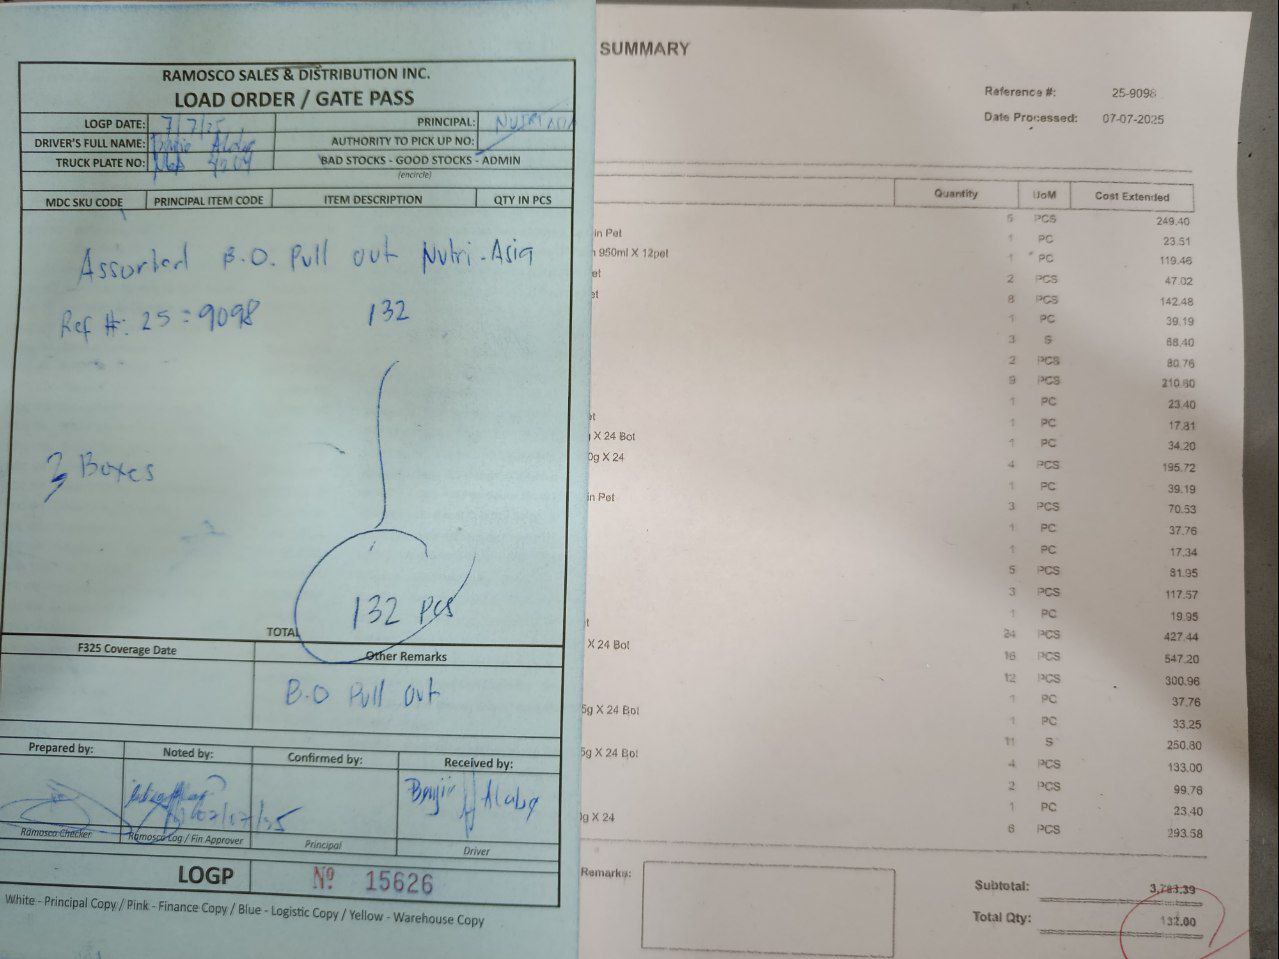 RAMOSCO SALES & DISTRIBUTION INC.
LOAD ORDER / GATE PASS
LOGP DATE: 7/7/25 PRINCIPAL: NUTRI ASIA
DRIVER'S FULL NAME: AUTHORITY TO PICK UP NO:
TRUCK PLATE NO: BAD STOCKS - GOOD STOCKS - ADMIN
(encircle)
MDC SKU CODE PRINCIPAL ITEM CODE ITEM DESCRIPTION QTY IN PCS
Assorted B.O. Pull out Nutri-Asia
Ref #: 25-9098 132
3 Boxes
132 pcs
TOTAL
F325 Coverage Date Other Remarks
B.O Pull Out
Prepared by: Noted by: Confirmed by: Received by:
07/07/25
Ramosco Checker Ramosco Log / Fin Approver Principal Driver
LOGP Nº 15626
White - Principal Copy / Pink - Finance Copy / Blue - Logistic Copy / Yellow - Warehouse Copy
SUMMARY
Reference #: 25-9098
Date Processed: 07-07-2025
Quantity UoM Cost Extended
5 PCS 249.40
in Pet 1 PC 23.51
950ml X 12pet 1 PC 119.46
et 2 PCS 47.02
et 8 PCS 142.48
1 PC 39.19
3 S 68.40
2 PCS 80.76
9 PCS 210.60
1 PC 23.40
et 1 PC 17.81
X 24 Bot 1 PC 34.20
0g X 24 4 PCS 195.72
1 PC 39.19
in Pet 3 PCS 70.53
1 PC 37.76
1 PC 17.34
5 PCS 81.95
3 PCS 117.57
1 PC 19.95
24 PCS 427.44
X 24 Bot 16 PCS 547.20
12 PCS 300.96
1 PC 37.76
5g X 24 Bot 1 PC 33.25
11 S 250.80
5g X 24 Bot 4 PCS 133.00
2 PCS 99.76
1 PC 23.40
g X 24 6 PCS 293.58
Remarks: Subtotal: 3,783.39
Total Qty: 132.00